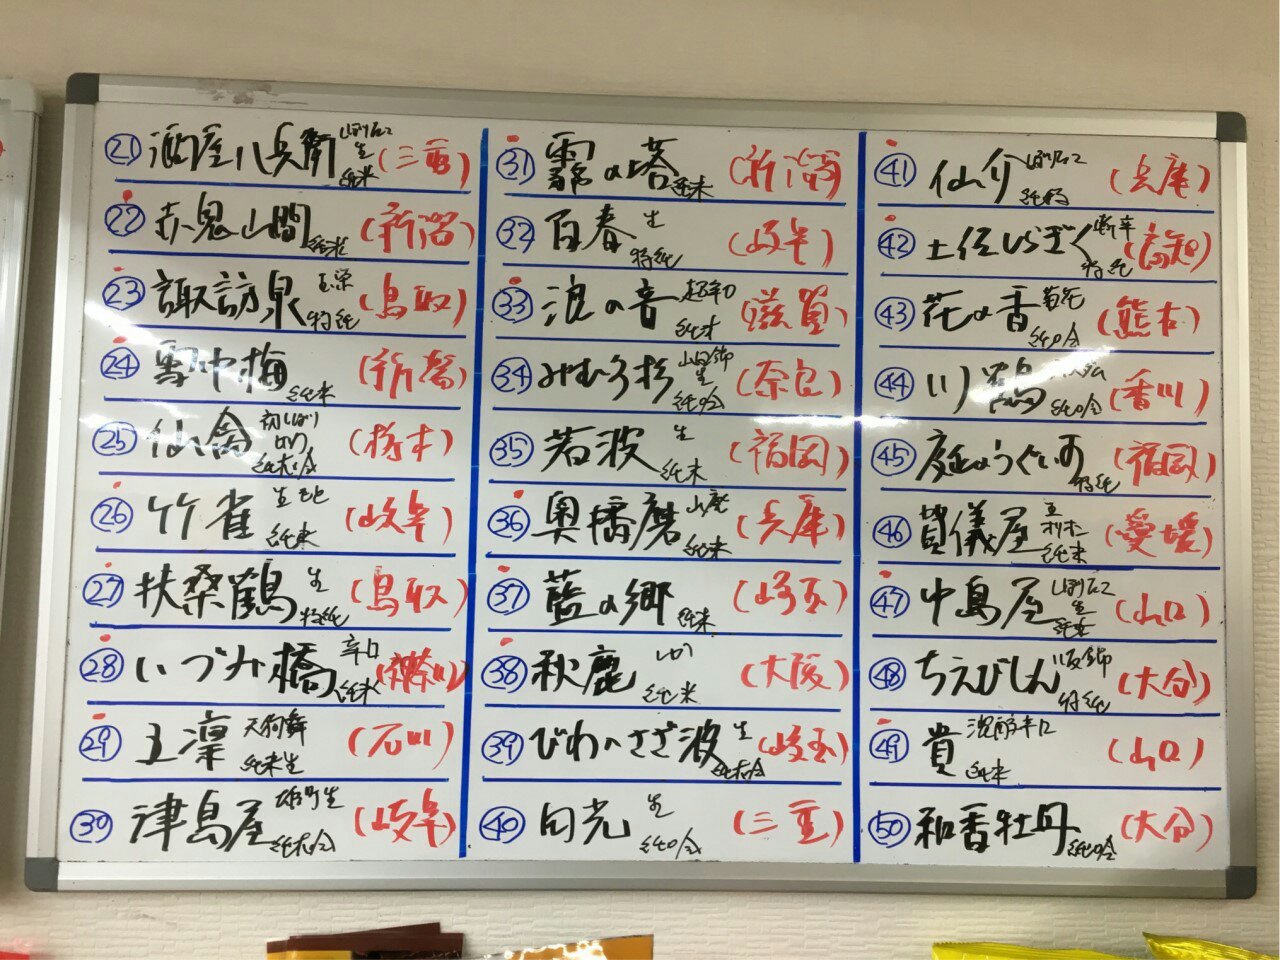 ㉑ 酒屋八兵衛 生 純米 (三重)
㉒ 赤鬼山間 (新潟)
㉓ 諏訪泉 玉栄 特純 (鳥取)
㉔ 雪中梅 純米 (新潟)
㉕ 仙禽 初しぼり 純大吟 (栃木)
㉖ 竹雀 生 純米 (岐阜)
㉗ 扶桑鶴 生 特純 (鳥取)
㉘ いづみ橋 辛口 純米 (神奈川)
㉙ 五凜 天狗舞 純米生 (石川)
㉚ 津島屋 雄町生 純大吟 (岐阜)
㉛ 霧の塔 純米 (新潟)
㉜ 百春 生 特純 (岐阜)
㉝ 浪の音 超辛口 純米 (滋賀)
㉞ みむろ杉 山田錦 生 純吟 (奈良)
㉟ 若波 生 純米 (福岡)
㊱ 奥播磨 山廃 純米 (兵庫)
㊲ 藍の郷 純米 (埼玉)
㊳ 秋鹿 純米 (大阪)
㊴ びわのさざ波 生 純大吟 (埼玉)
㊵ 旬光 生 純吟 (三重)
㊶ 仙介 特純 (兵庫)
㊷ 土佐しらぎく 斬辛 特純 (高知)
㊸ 花の香 菊花 純吟 (熊本)
㊹ 川鶴 純吟 (香川)
㊺ 庭のうぐいす 特純 (福岡)
㊻ 賀儀屋 純米 (愛媛)
㊼ 中島屋 しぼりたて 生 純米 (山口)
㊽ ちえびじん 山田錦 特純 (大分)
㊾ 貴 濃醇辛口 純米 (山口)
㊿ 和香牡丹 純吟 (大分)